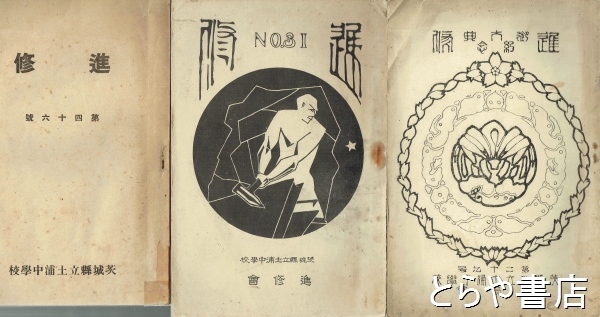 進修
第四十六號
茨城縣立土浦中學校
進修
NO.31
茨城縣立土浦中學校
進修會
進修
御大典紀念
とらや書店